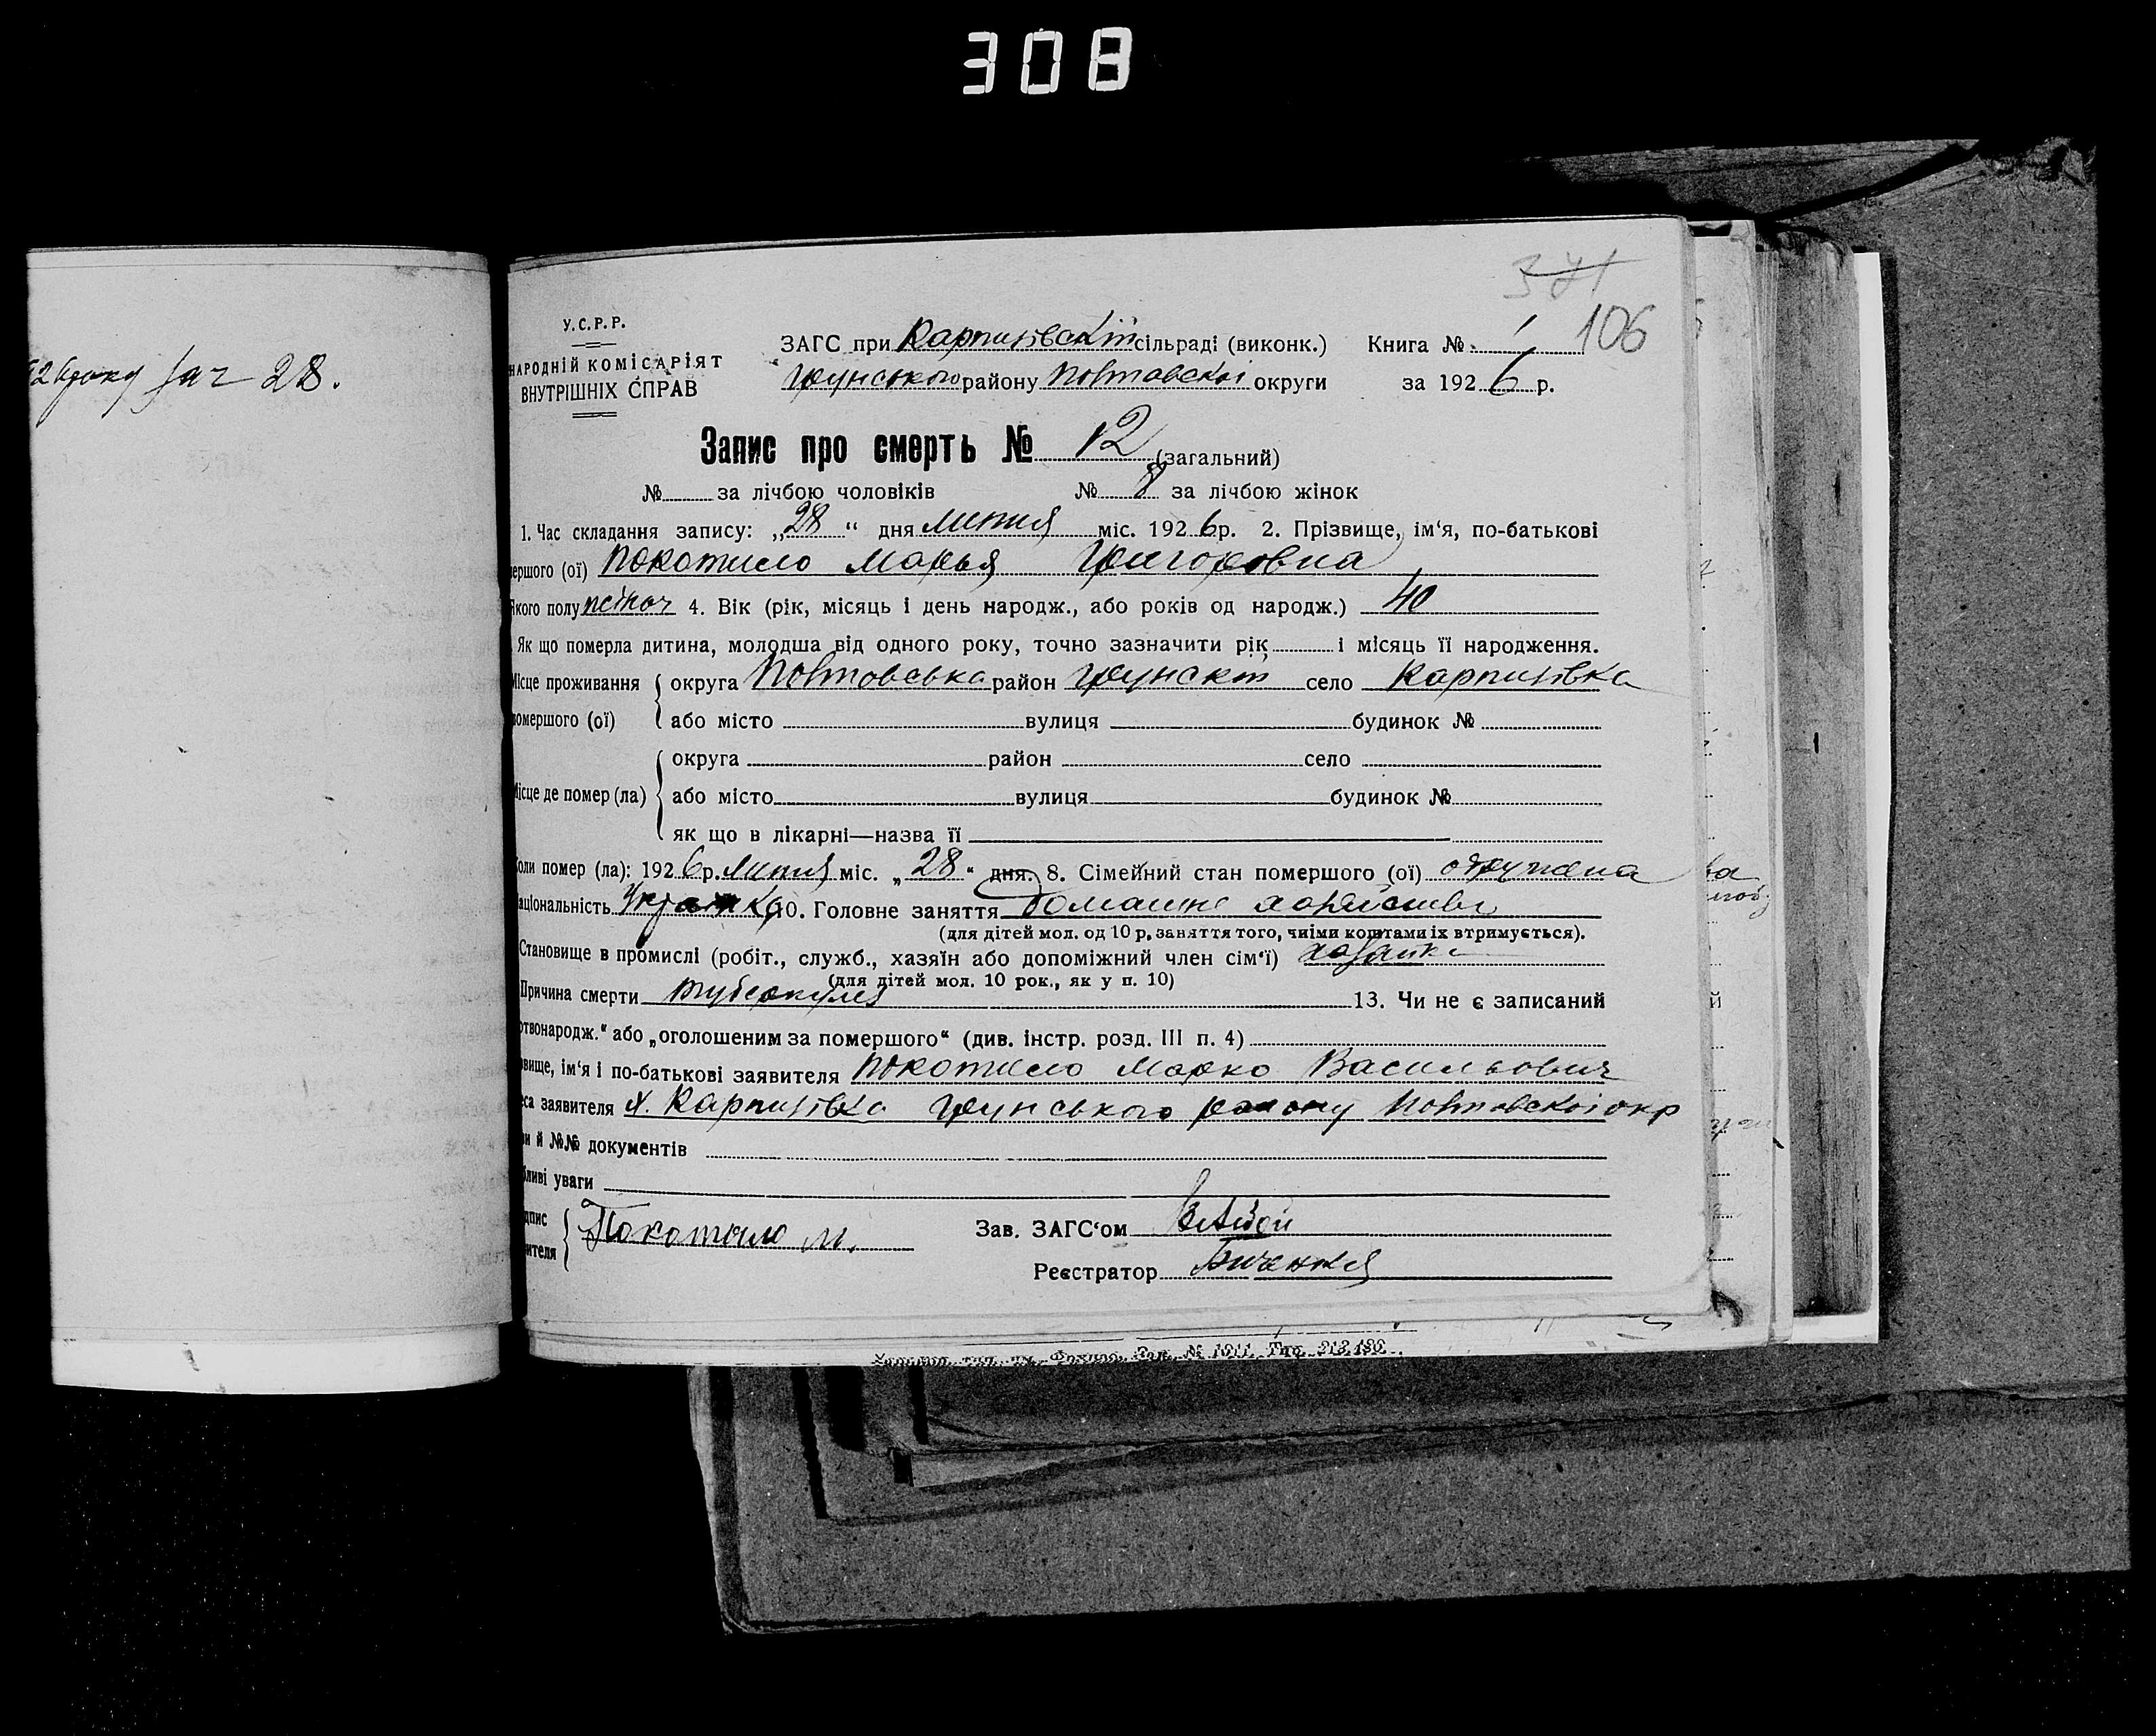 308
371
106
28.
У.С.Р.Р.
НАРОДНІЙ КОМІСАРІЯТ
ВНУТРІШНІХ СПРАВ
ЗАГС при Карпилівскій сільраді (виконк.) Книга № 1
Грунського району Полтавскоі округи за 1926 р.
Запис про смерть № 12 (загальний)
№ за лічбою чоловіків № 8 за лічбою жінок
1. Час складання запису: „28“ дня липня міс. 1926 р. 2. Прізвище, ім'я, по-батькові
ершого (ої) Покотило Марья Григоровна
Якого полу 4. Вік (рік, місяць і день народж., або років од народж.) 40
Як що померла дитина, молодша від одного року, точно зазначити рік і місяць її народження.
Місце проживання округа Полтовська район Грунскій село Карпилівка
помершого (ої) або місто вулиця будинок №
округа район село
Місце де помер (ла) або місто вулиця будинок №
як що в лікарні—назва її
Коли помер (ла): 1926 р. липня міс. „28“ дня. 8. Сімейний стан помершого (ої)
аціональність 10. Головне заняття домашне
(для дітей мол. од 10 р. заняття того, чиїми коштами їх втримується).
Становище в промислі (робіт., служб., хазяїн або допоміжний член сім'ї) хозяйка
(для дітей мол. 10 рок., як у п. 10)
Причина смерти туберкулез 13. Чи не є записаний
ртвонародж.“ або „оголошеним за помершого“ (див. інстр. розд. III п. 4)
звище, ім'я і по-батькові заявителя Покотило Марко Васильович
еса заявителя х. Карпилівка Грунського району Полтавскоі окр
ви й №№ документів
бливі уваги
дпис
вителя Покотило М. Зав. ЗАГС'ом
Реєстратор